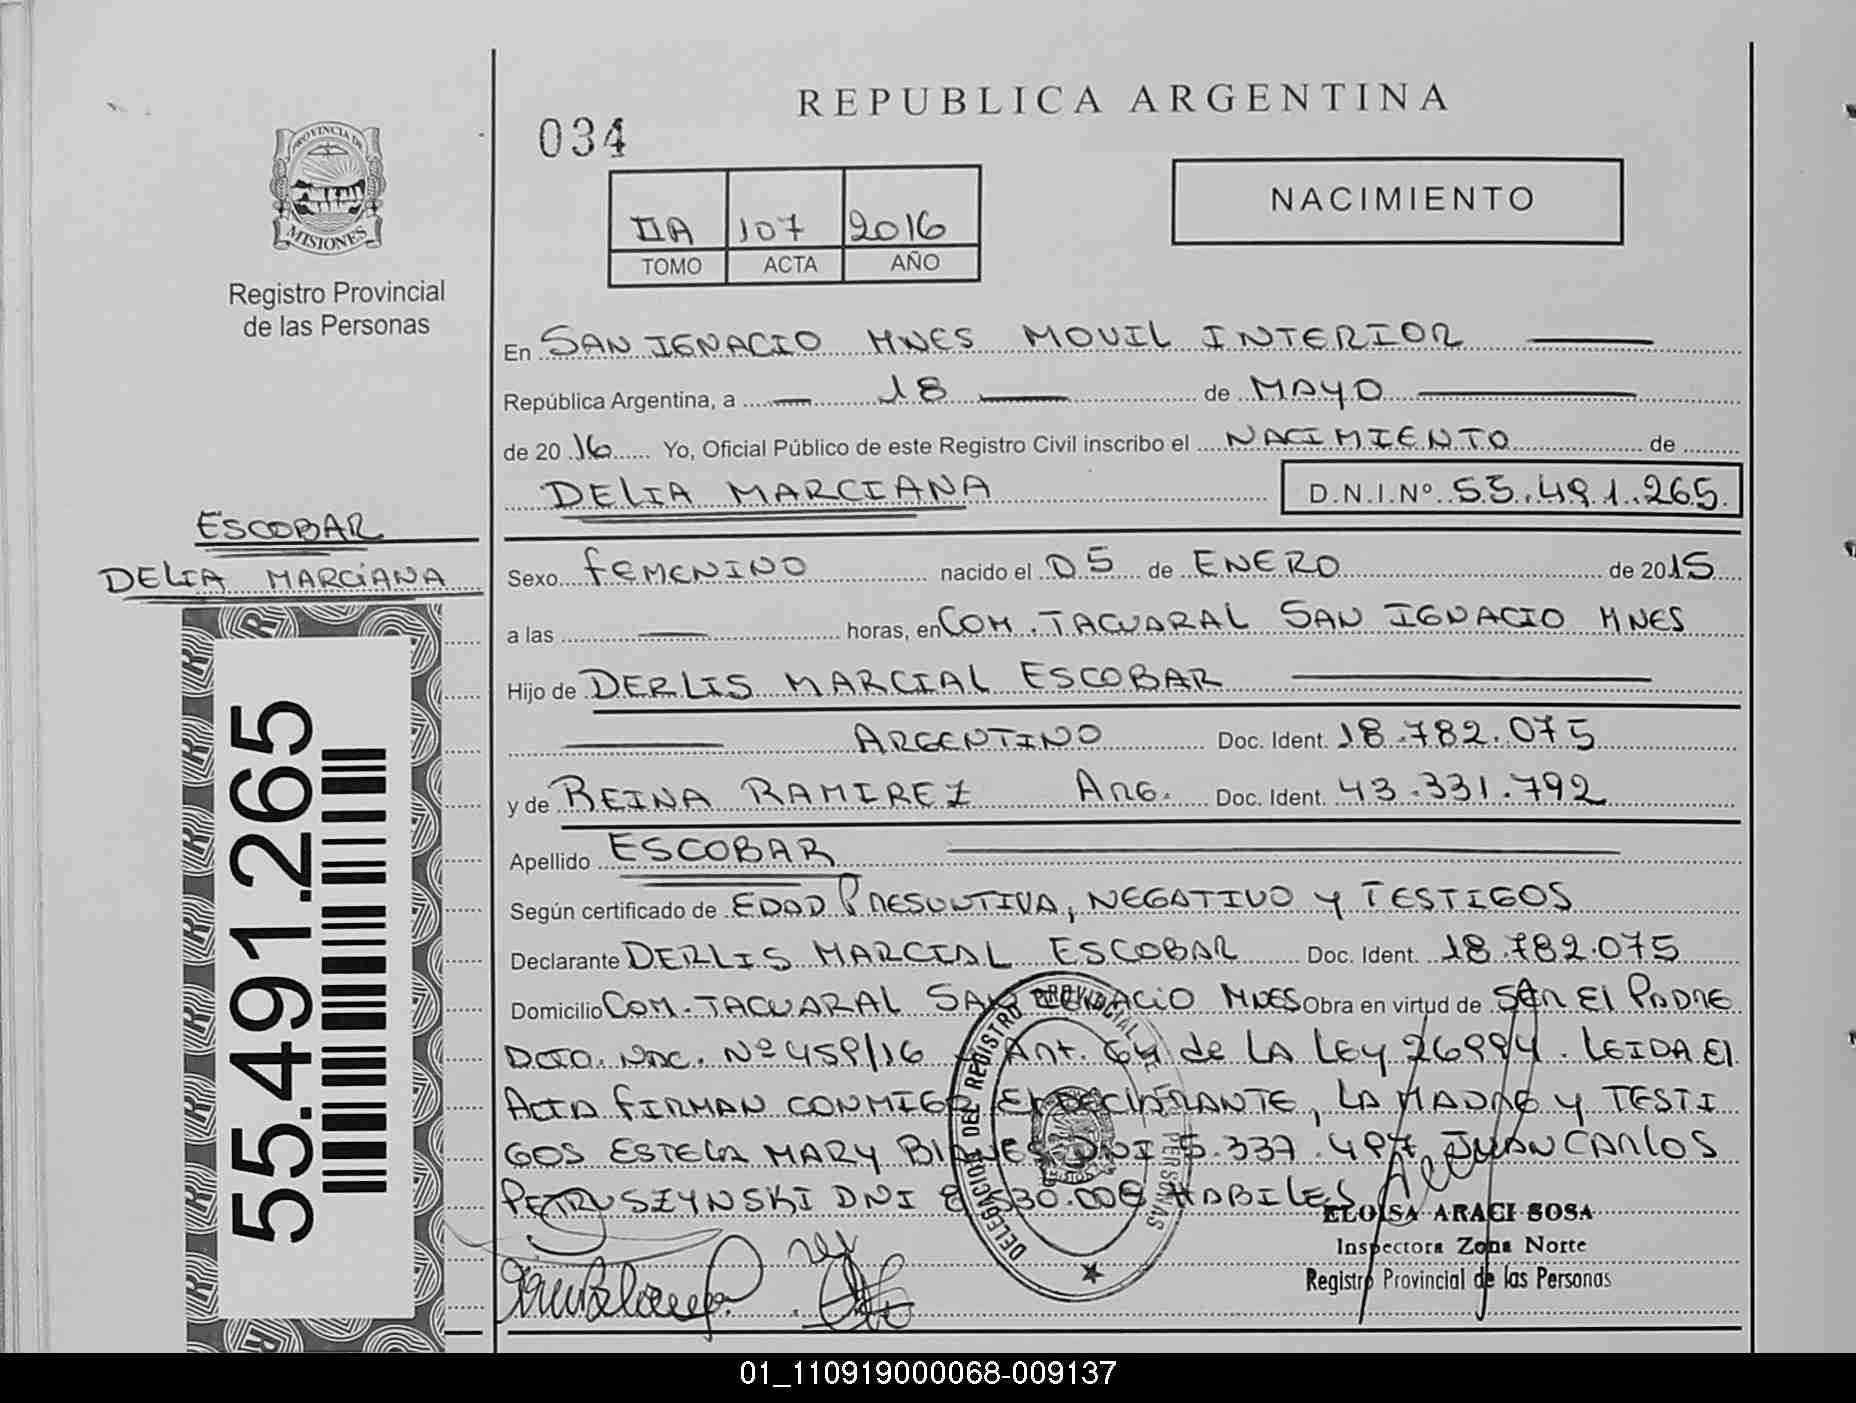 REPUBLICA ARGENTINA
034
NACIMIENTO
IIA 107 2016
TOMO ACTA AÑO
PROVINCIA DE
MISIONES
Registro Provincial
de las Personas
En SAN IGNACIO MNES MOVIL INTERIOR
República Argentina, a 18 de MAYO
de 2016 Yo, Oficial Público de este Registro Civil inscribo el NACIMIENTO de
DELIA MARCIANA D.N.I.Nº 55.491.265
ESCOBAR
DELIA MARCIANA
55.491.265
Sexo FEMENINO nacido el 05 de ENERO de 2015
a las horas, en COM. TACUARAL SAN IGNACIO MNES
Hijo de DERLIS MARCIAL ESCOBAR
ARGENTINO Doc. Ident. 18.782.075
y de REINA RAMIREZ ARG. Doc. Ident. 43.331.792
Apellido ESCOBAR
Según certificado de EDAD PRESUNTIVA, NEGATIVO Y TESTIGOS
Declarante DERLIS MARCIAL ESCOBAR Doc. Ident. 18.782.075
Domicilio COM. TACUARAL SAN IGNACIO MNES Obra en virtud de SER El PADRE
DCTO. NAC. Nº 459/16 Art. 64 de LA LEY 26994. LEIDA El
ACTA FIRMAN CONMIGO El DECLARANTE, LA MADRE Y TESTI
GOS ESTELA MARY DNI 5.337.497 JUAN CARLOS
PETRUSZYNSKI DNI HABILES
DELEGACION DEL REGISTRO PROVINCIAL DE LAS PERSONAS
ELOISA ARACI SOSA
Inspectora Zona Norte
Registro Provincial de las Personas
01_110919000068-009137